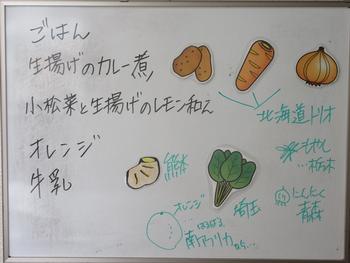 ごはん
生揚げのカレー煮
小松菜と生揚げのレモン和え
オレンジ
牛乳
北海道トリオ
もやし
…栃木
熊本
埼玉
にんにく
青森
オレンジ
はるばる
南アフリカ
から…